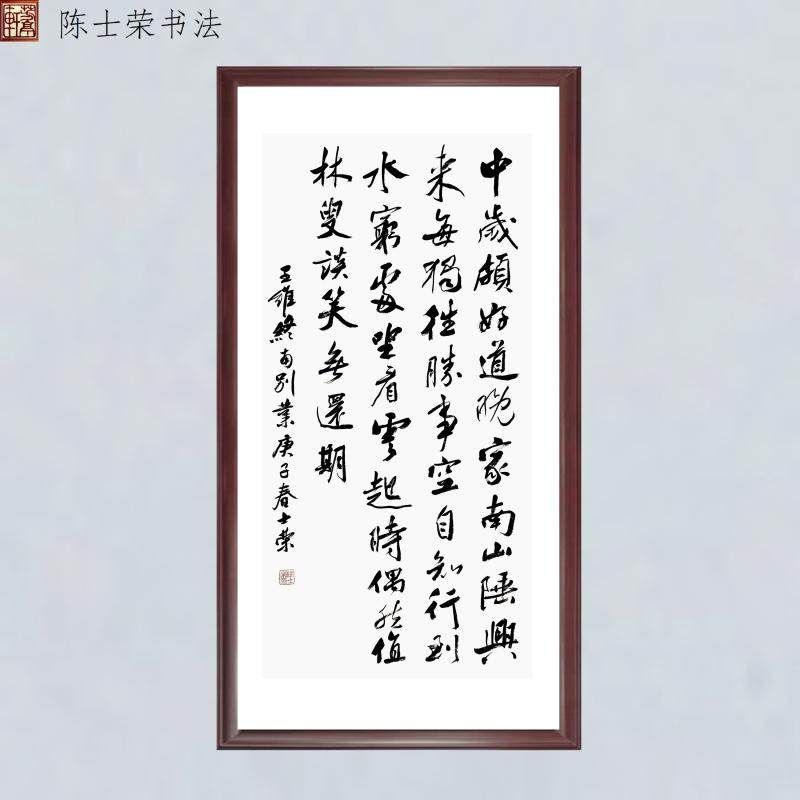 陈士荣书法
中歲頗好道晚家南山陲興
来每獨往勝事空自知行到
水窮處坐看雲起時偶然值
林叟談笑無還期
王維終南别業庚子春士荣